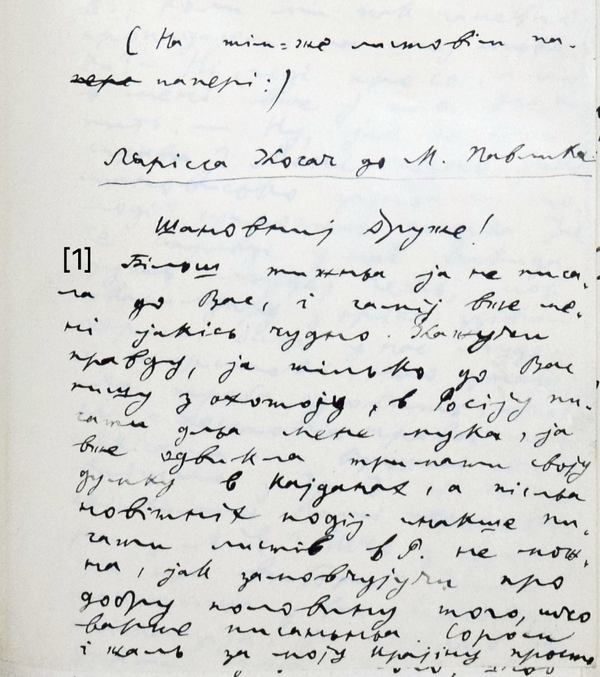 ( На тім=же листовім па-
пері: )
Лярісса Косач до М. Павлика.
Шановниј Друже!
[1] Більш тижньа ја не писа-
ла до Вас, і самиј вже ме-
ні јакісь чудно. Кажучи
правду, ја тілько до Вас
пишу з охотоју, в Росіју пи-
сати дльа мене мука, ја
вже одвикла тримати своју
думку в кајданах, а післьа
новітніх подіј инакше пи-
сати листів в Р. не мож-
на, јак замовчујучи про
добру половину того, шчо
варте писаньньа. Сором
і жаль за мују крајіну просто